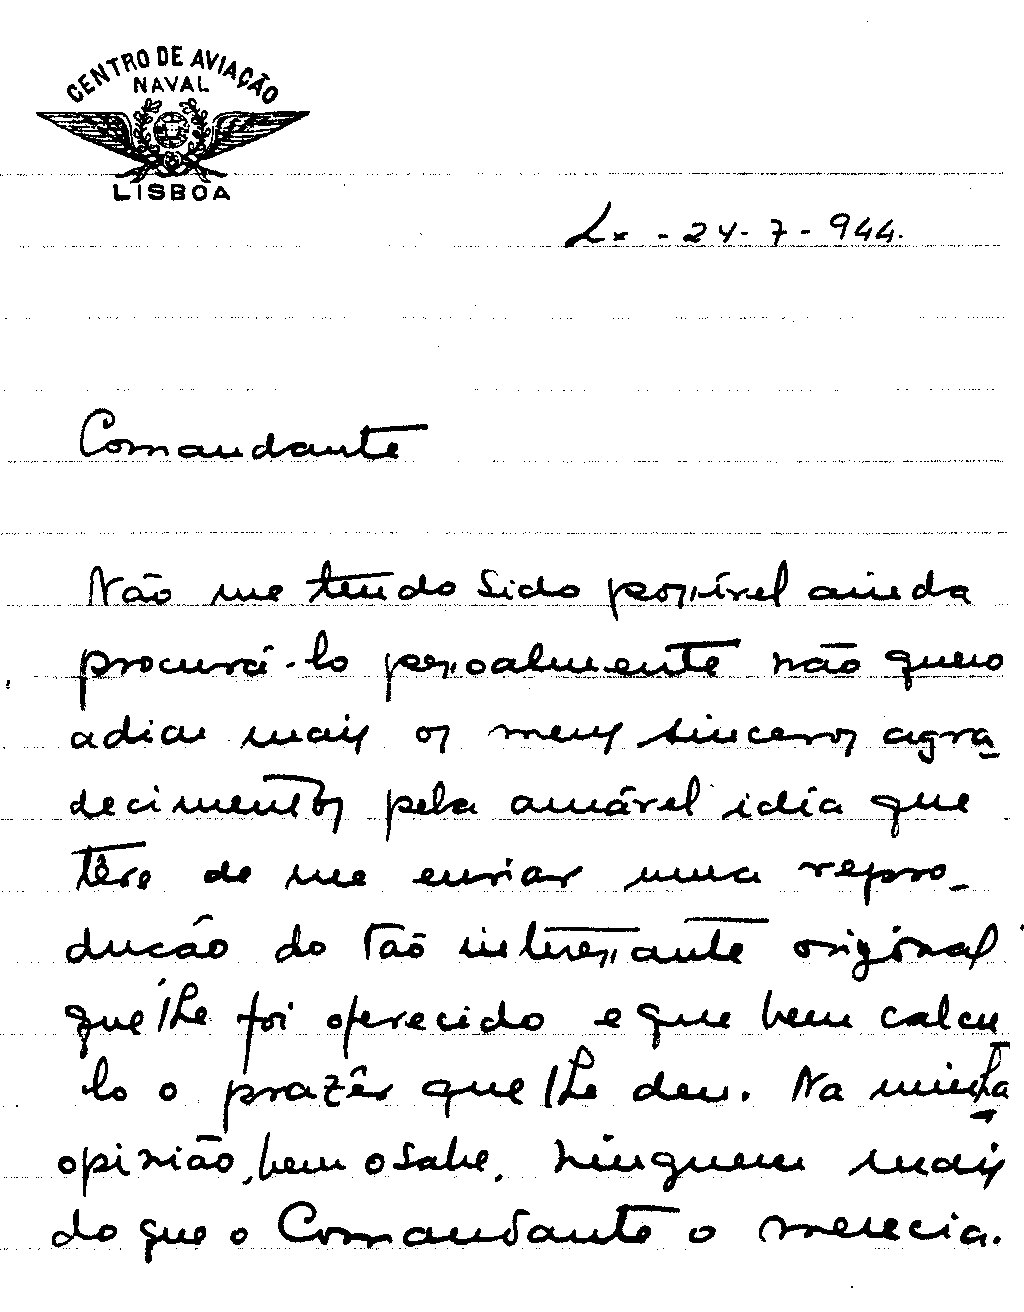 CENTRO DE AVIAÇÃO
NAVAL
LISBOA
Lx - 24 - 7 - 944.
Comandante
Não me tendo sido possível ainda
procurá-lo pessoalmente não quero
adiar mais os meus sinceros agra-
decimentos pela amável idia que
têve de me enviar uma repro-
dução do tão interessante original
que lhe foi oferecido e que bem calcu
lo o prazêr que lhe deu. Na minha
opinião, bem o sabe, ninguem mais
do que o Comandante o merecia.